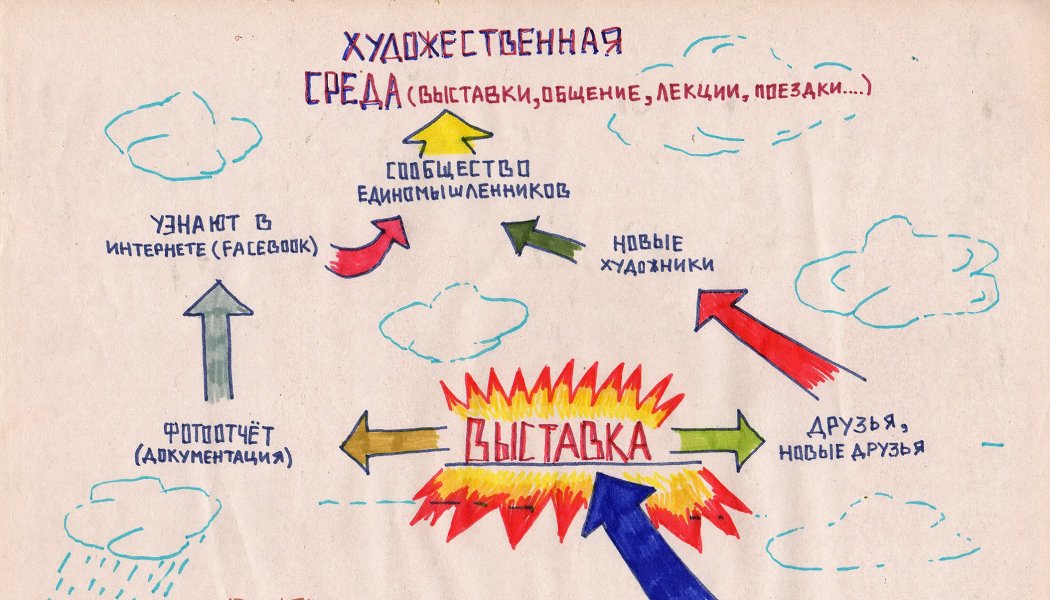 ХУДОЖЕСТВЕННАЯ
СРЕДА (ВЫСТАВКИ, ОБЩЕНИЕ, ЛЕКЦИИ, ПОЕЗДКИ....)
СООБЩЕСТВО
ЕДИНОМЫШЛЕННИКОВ
УЗНАЮТ В
ИНТЕРНЕТЕ (FACEBOOK)
НОВЫЕ
ХУДОЖНИКИ
ФОТООТЧЁТ
(ДОКУМЕНТАЦИЯ)
ВЫСТАВКА
ДРУЗЬЯ,
НОВЫЕ ДРУЗЬЯ